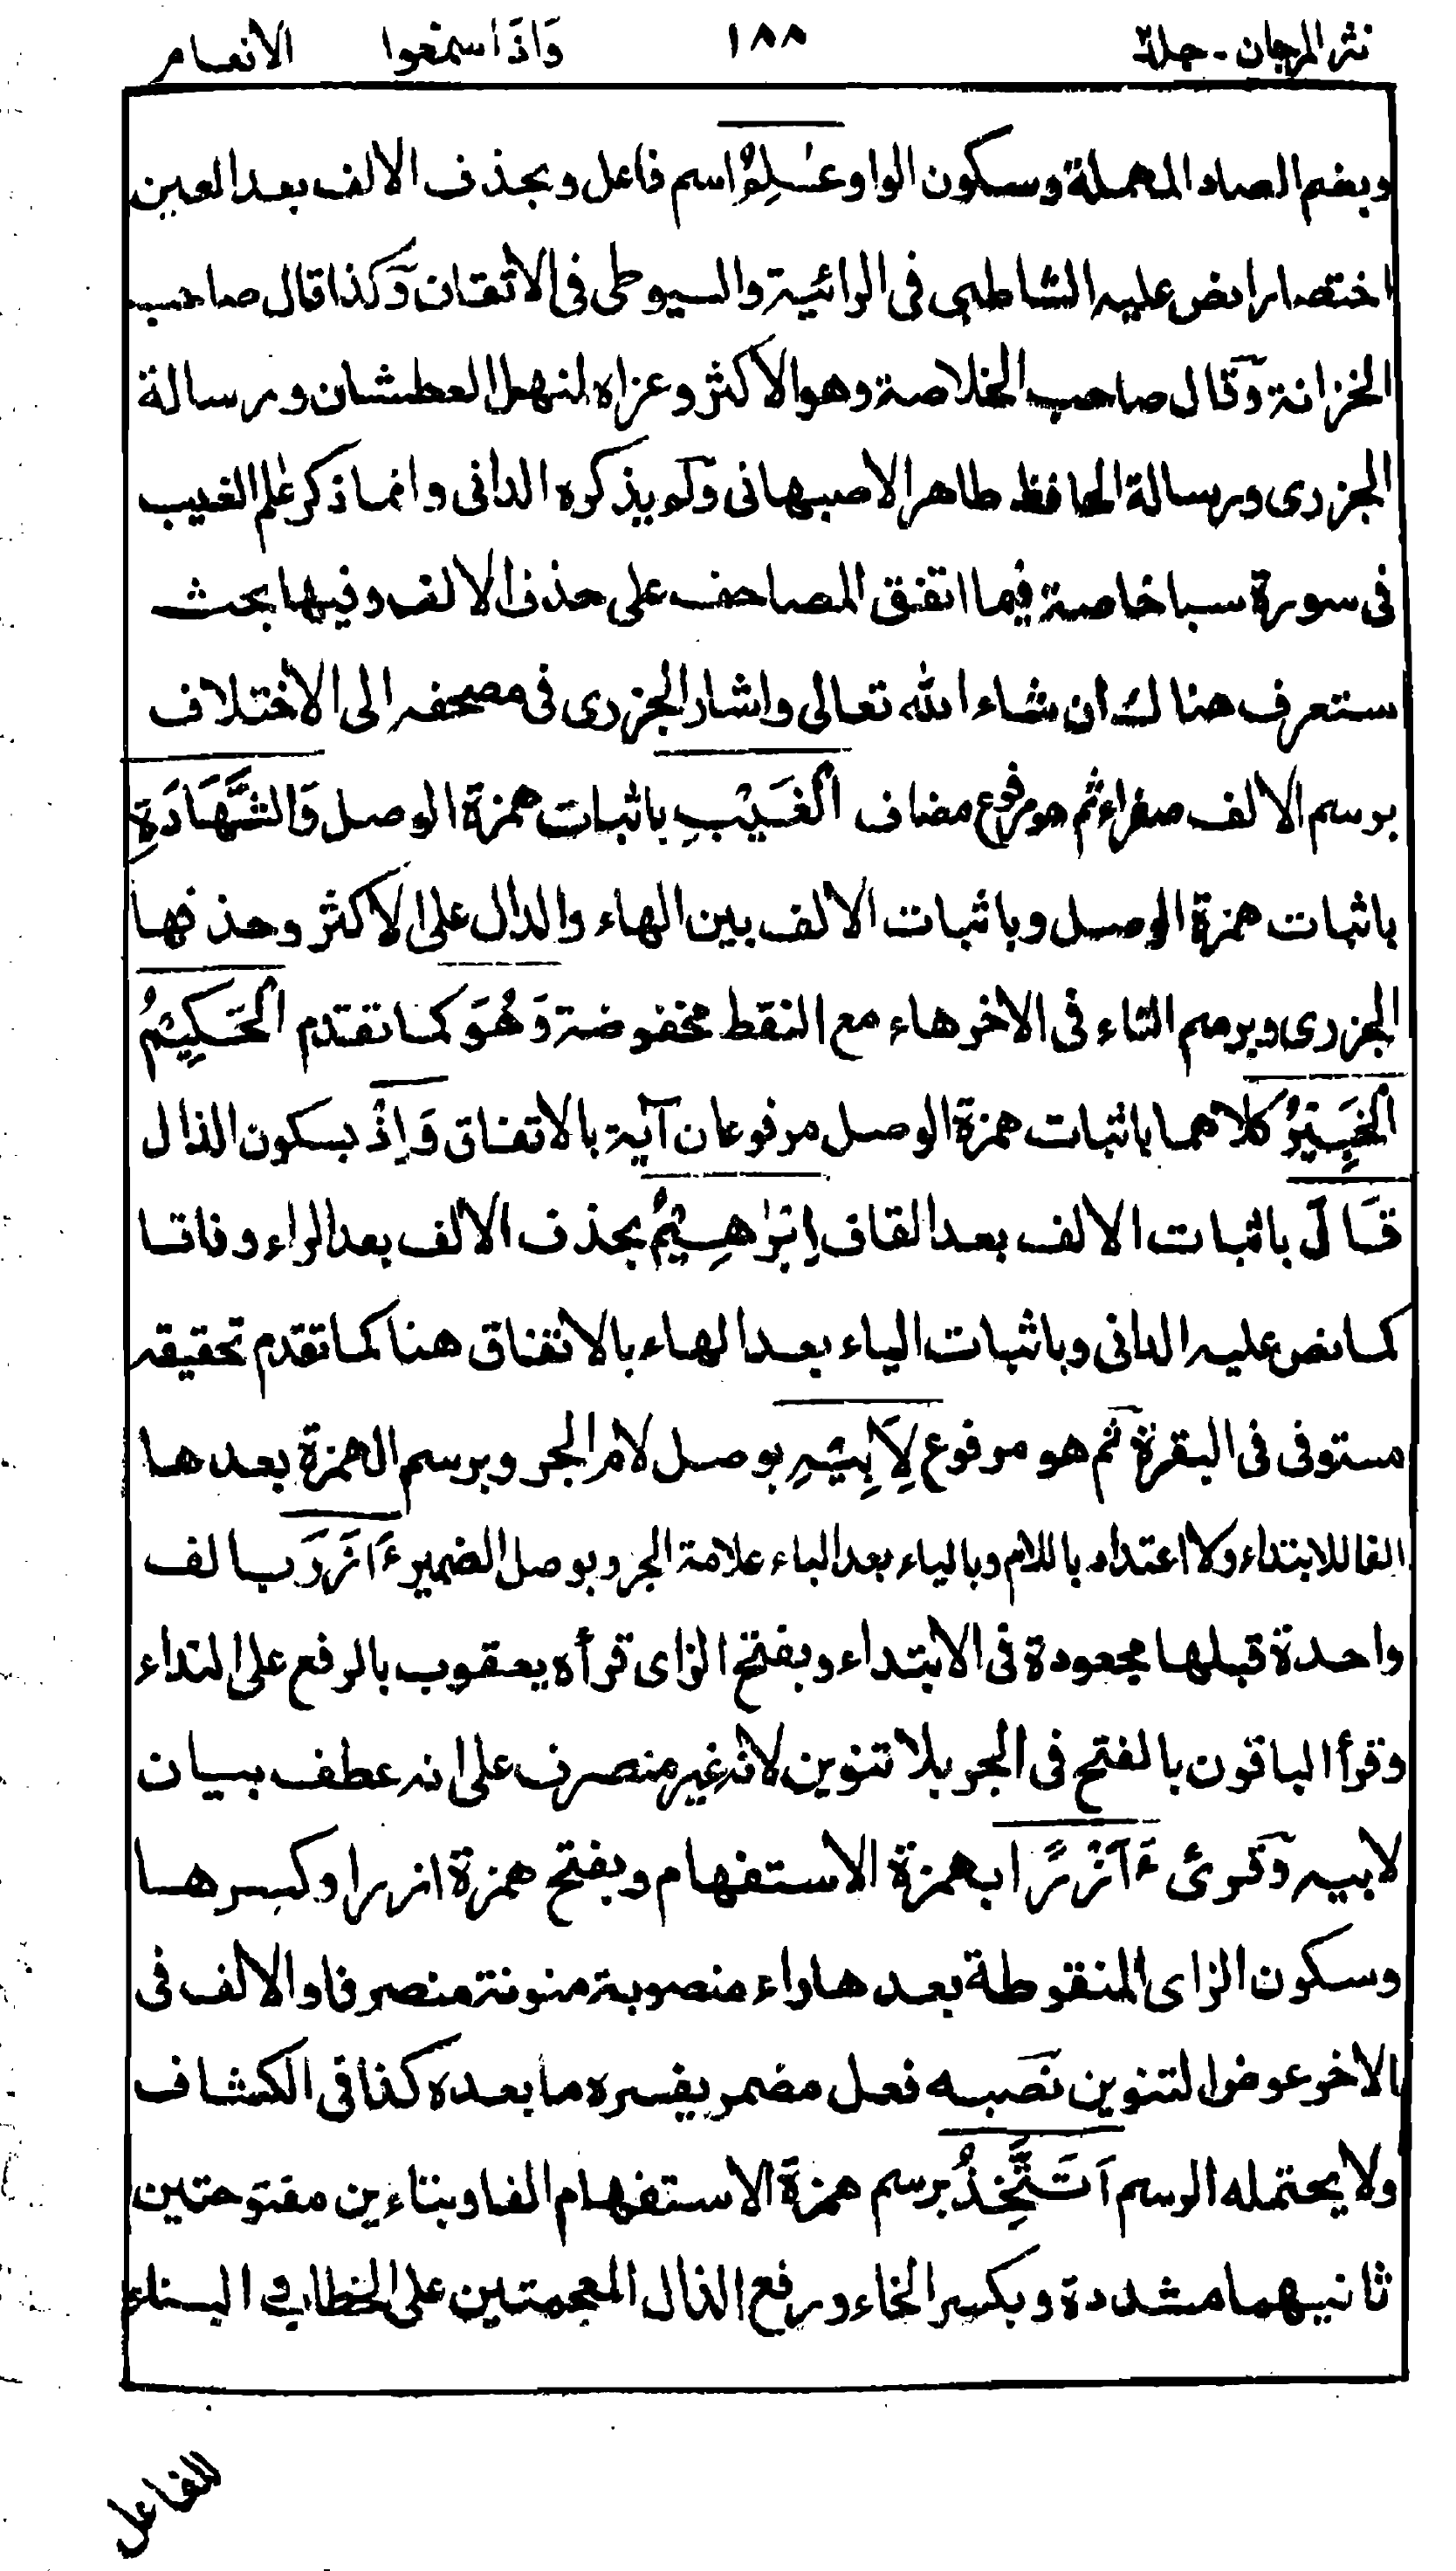 نثر المرجان - جلد٢ ١٨٨ وَاِذَا سمعوا الانعام
وبضم الصاد المهملة وسكون الواو عٰلِمُ اسم فاعل وبحذف الالف بعد العين
اختصارا نص عليه الشاطبى فى الرائية والسيوطى فى الاتقان وكذا قال صاحب
الخزانة وقال صاحب الخلاصة وهو الاكثر وعزاه لمنهل العطشان ورسالة
الجزرى ورسالة الحافظ طاهر الاصبهانى ولم يذكره الدانى وانما ذكر علم الغيب
فى سورة سبا خاصة فيما اتفق المصاحف على حذف الالف وفيها بحث
ستعرف هناك ان شاء الله تعالى واشار الجزرى فى مصحفه الى الاختلاف
برسم الالف صفراء ثم هو مرفوع مضاف الْغَيْبِ باثبات همزة الوصل وَالشَّهَادَةِ
باثبات همزة الوصل وباثبات الالف بين الهاء والدال على الاكثر وحذفها
الجزرى وبرسم التاء فى الاخر هاء مع النقط مخفوضة وَهُوَ كما تقدم الْحَكِيْمُ
الْخَبِيْرُ كلاهما باثبات همزة الوصل مرفوعان آية بالاتفاق وَاِذْ بسكون الذال
قَالَ باثبات الالف بعد القاف اِبْرٰهِيْمُ بحذف الالف بعد الراء وفاقا
كما نص عليه الدانى وباثبات الياء بعد الهاء بالاتفاق هنا كما تقدم تحقيقه
مستوفى فى البقرة ثم هو مرفوع لِاَبِيْهِ بوصل لام الجر وبرسم الهمزة بعدها
الفا للابتداء ولا اعتداد باللام وبالياء بعد الباء علامة الجر وبوصل الضمير ءَازَرَ بالف
واحدة قبلها مجعودة فى الابتداء وبفتح الزاى قرأه يعقوب بالرفع على النداء
وقرأ الباقون بالفتح فى الجر بلا تنوين لانه غير منصرف على انه عطف بيان
لابيه وقرئ ءَاَزْرًا بهمزة الاستفهام وبفتح همزة ازرا وكسرها
وسكون الزاى المنقوطة بعدها راء منصوبة منونة منصرفا والالف فى
الاخر عوض التنوين نصبه فعل مضمر يفسره ما بعده كذا فى الكشاف
ولا يحتمله الرسم اَتَتَّخِذُ برسم همزة الاستفهام الفا وبتاءين مفتوحتين
ثانيهما مشددة وبكسر الخاء ورفع الذال المعجمتين على الخطاب و البناء
للفاعل